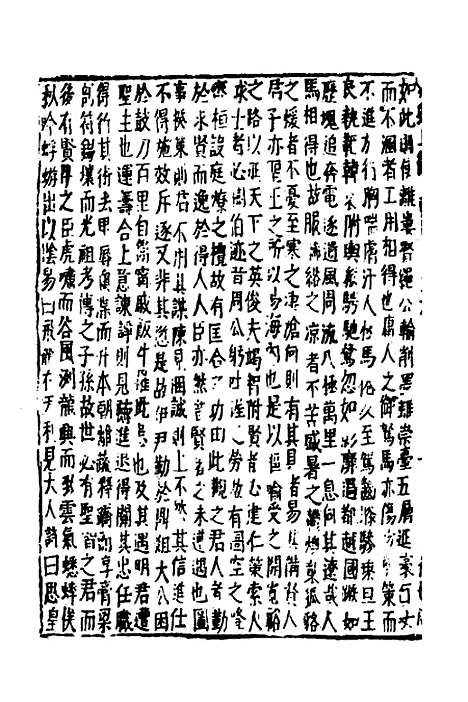 如此則使離婁督繩公輸削墨雖崇臺五層延袤百丈
而不溷者工用相得也庸人之御駑馬亦傷吻敝策而
不進於行胸喘膚汗人極馬倦及至駕齧膝驂乘旦王
良執靶韓哀附輿縱騁馳騖忽如影靡過都越國蹶如
歷塊追奔電逐遺風周流八極萬里一息何其遼哉人
馬相得也故服絺綌之涼者不苦盛暑之鬱燠襲狐貉
之煖者不憂至寒之悽愴何則有其具者易其備賢人
君子亦聖王之所以易海內也是以嘔喻受之開寬裕
之路以延天下之英俊夫竭智附賢者必建仁策索人
求士者必樹伯迹昔周公躬吐握之勞故有圄空之隆
齊桓設庭燎之禮故有匡合之功由此觀之君人者勤
於求賢而逸於得人人臣亦然昔賢者之未遭遇也圖
事揆策則君不用其謀陳見悃誠則上不然其信進仕
不得施效斥逐又非其愆是故伊尹勤於鼎俎太公困
於鼓刀百里自鬻甯戚飯牛離此患也及其遇明君遭
聖主也運籌合上意諫諍則見聽進退得關其忠任職
得行其術去卑辱奧渫而升本朝離蔬釋蹻而享膏粱
剖符錫壤而光祖考傳之子孫故世必有聖智之君而
後有賢明之臣虎嘯而谷風冽龍興而致雲氣蟋蟀俟
秋吟蜉蝣出以陰易曰飛龍在天利見大人詩曰思皇